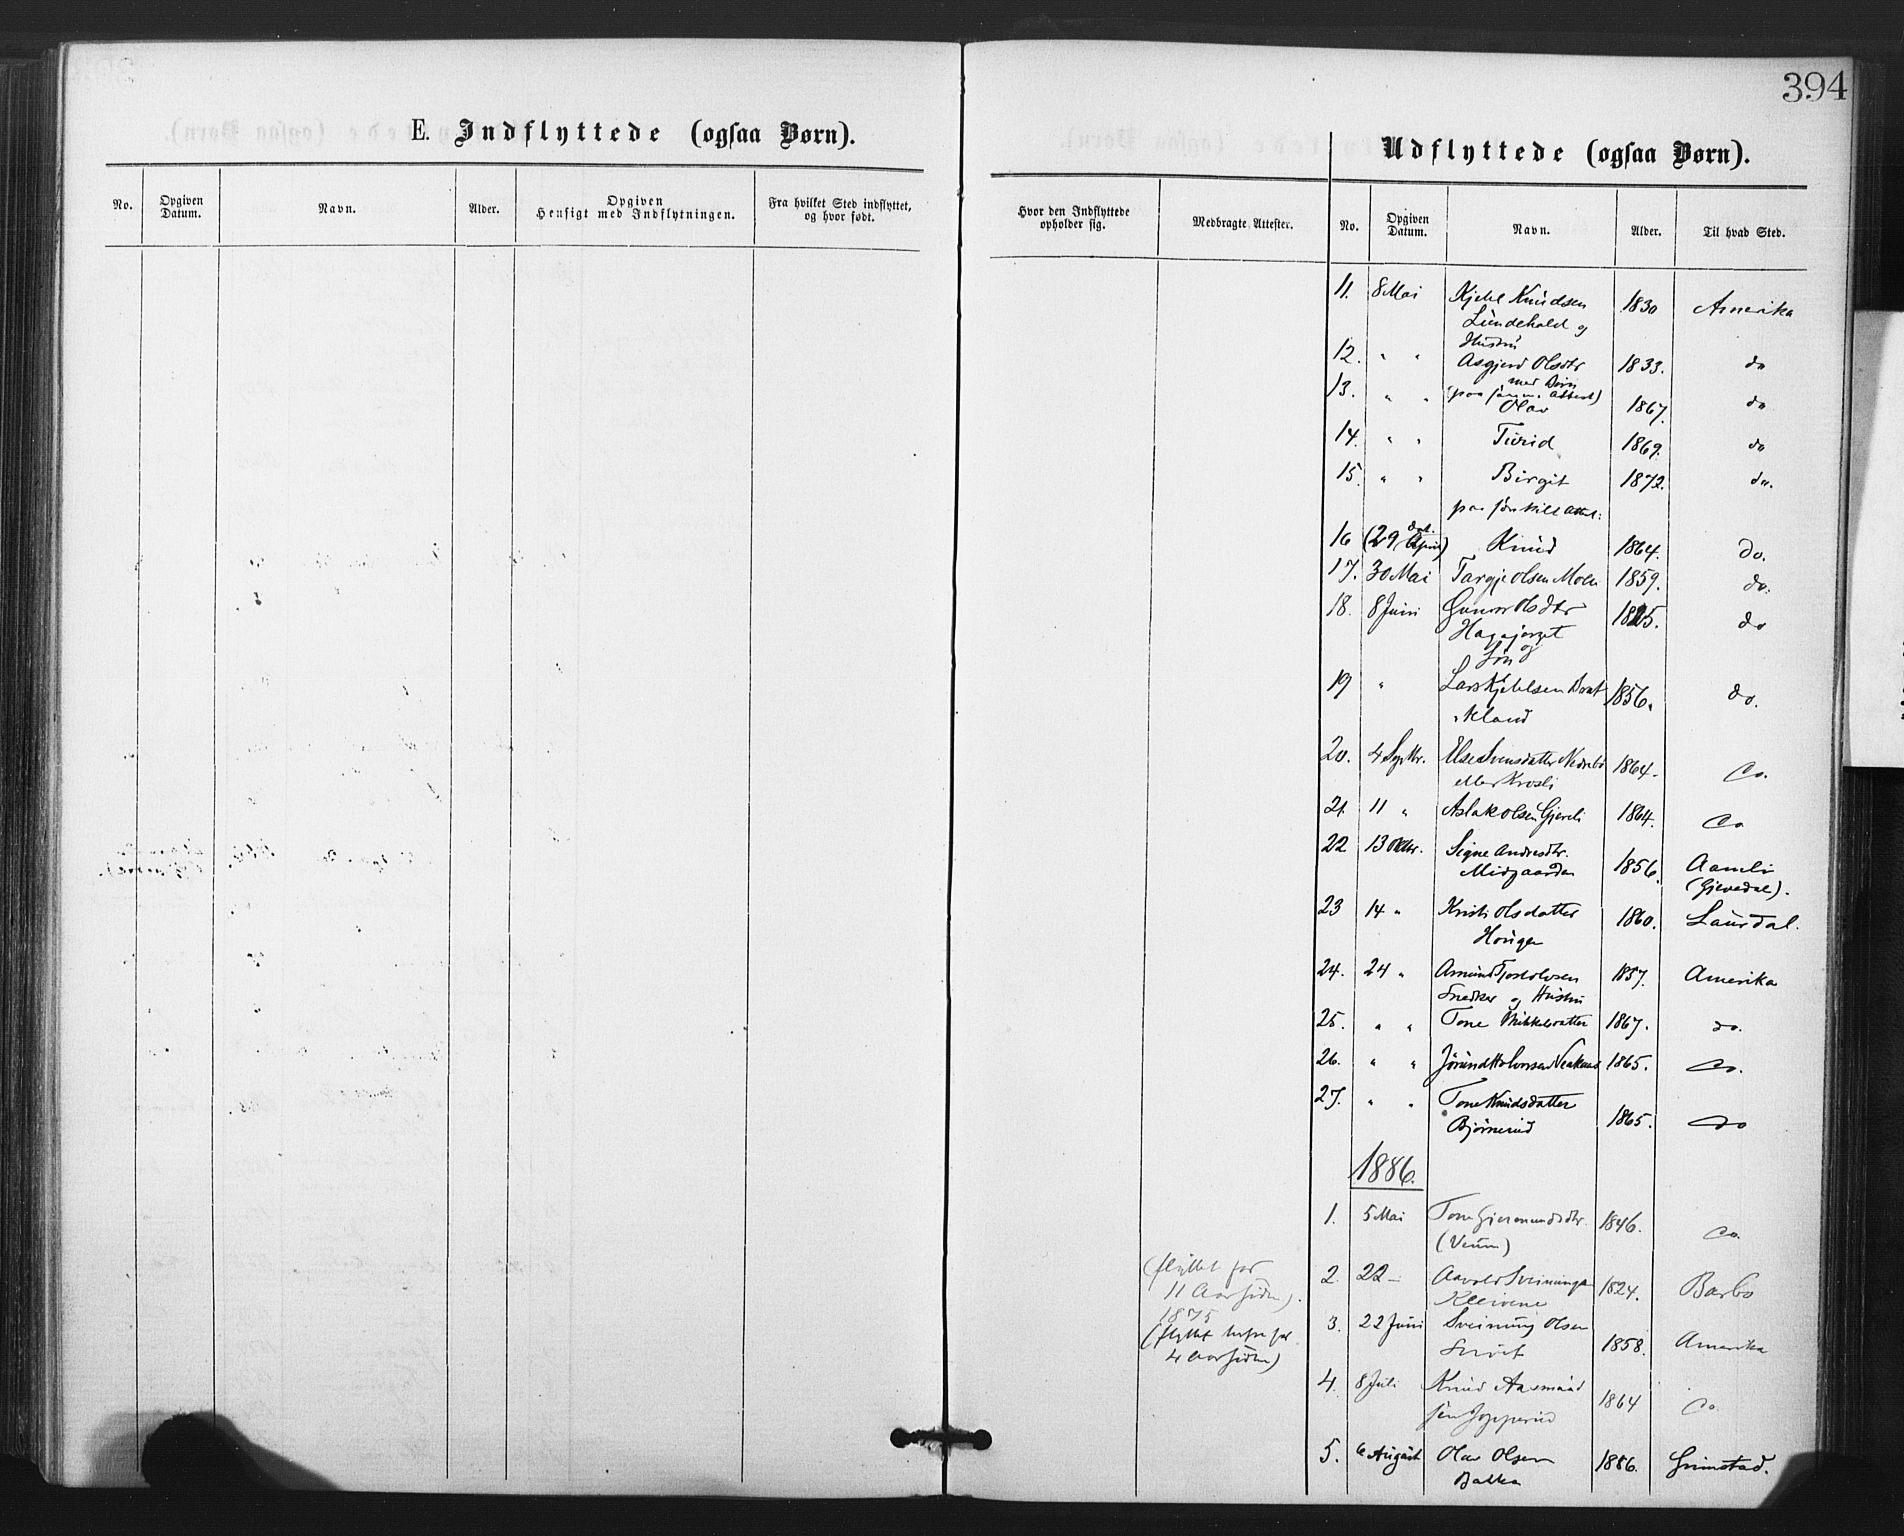 394
E. Indflyttede (ogsaa Børn).
Udflyttede (ogsaa Børn).
No. Opgiven Datum. Navn. Alder. Opgiven Hensigt med Indflytningen. Fra hvilket Sted indflyttet, og hvor født.
Hvor den Indflyttede opholder sig. Medbragte Attester. No. Opgiven Datum. Navn. Alder. Til hvad Sted.
11. 8 Mai Kjetil Knudsen 1830 Amerika
og
Hustru
12. " " Asgjerd Olsdtr 1833. do
med Børn
13. " " (paa samme Attest)
Olav 1867. do
14. " " Turid 1869. do
15. " " Birgit 1872. do.
paa særskilt Attest:
16 (29 dat. April) Knud 1864. do.
17. 30 Mai Targje Olsen Moen 1859. do.
18. 8 Juni Gunvor Olsdtr 1825. do
og
Søn
19 " Lars Kjetilsen 1856. do.
20. 4 Septbr. Else Svensdatter 1864. do.
eller Krosli
21. 11 " Aslak Olsen Gjereli 1864. do
22 13 Oktbr. Signe Andresdtr. 1856. Aamli
Midgaarden (Gjevedal).
23 14 " Kristi Olsdatter 1860. Laurdal.
Hougen
24. 24 " Amund Tjostolvsen 1857. Amerika
Snedker og Hustru
25. " " Tone Mikkelsdatter 1867. do.
26. " " Jørund Halvorsen 1865. do.
27. " " Tone Knudsdatter 1865. do
Bjørnerud
1886.
1. 5 Mai Tone Gjermundsdtr. 1846. do.
(Veum)
(flyttet for 2. 22 – 1824. Barbo
11 Aar siden). Kleivene
1875
(flyttet herfra for 3. 22 Juni Sveinung Olsen 1858. Amerika
4 Aar siden)
4. 8 Juli Knud Aasmund 1864 do.
sen
5. 6 August Olav Olsen 1886. Grimstad.
Bakka